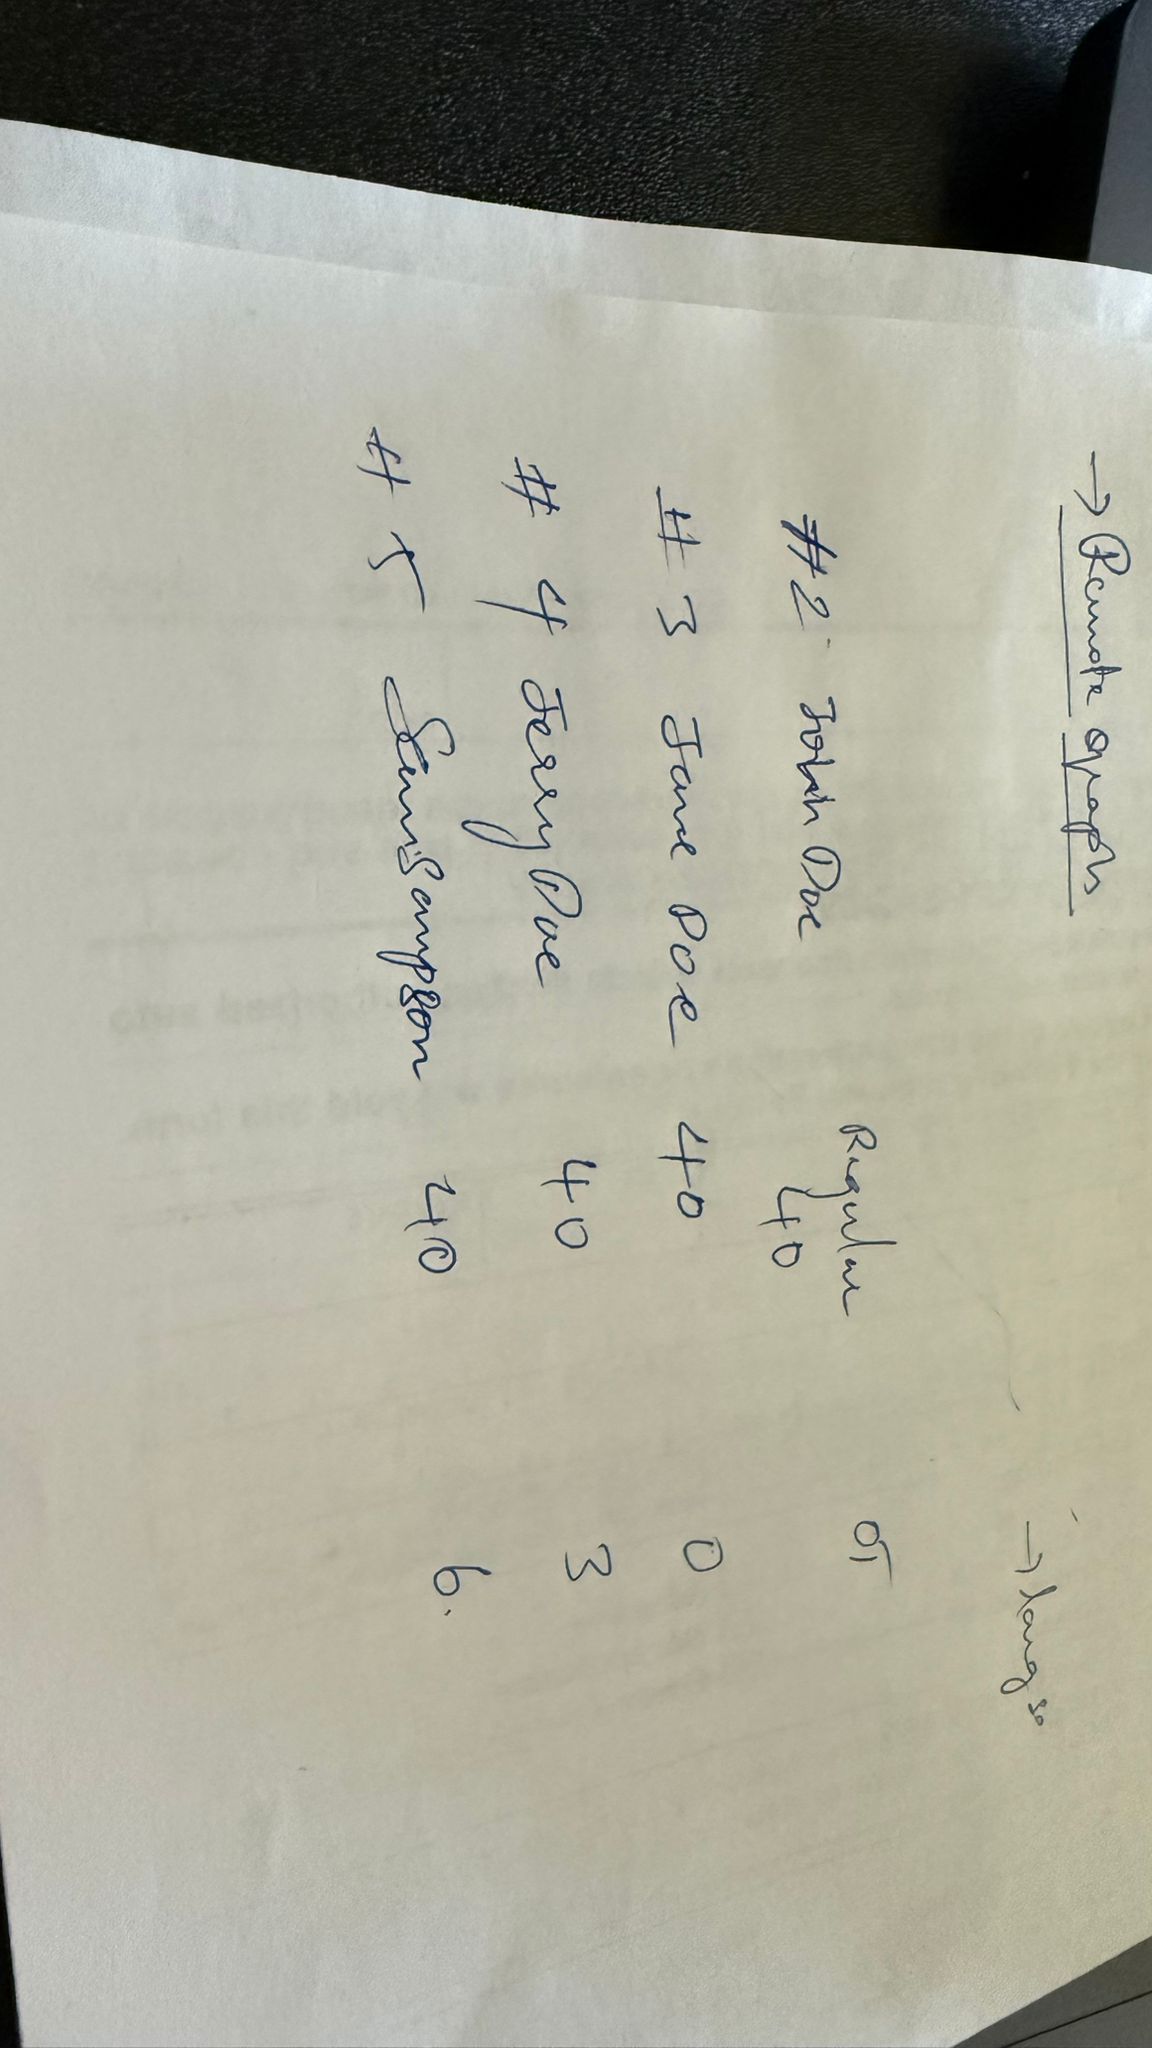 → Remote graphs
→ lang so
Regular OT
#2 John Doe 40
#3 Jane Doe 40 0
#4 Jerry Doe 40 3
#5 Sam Sampson 40 6.